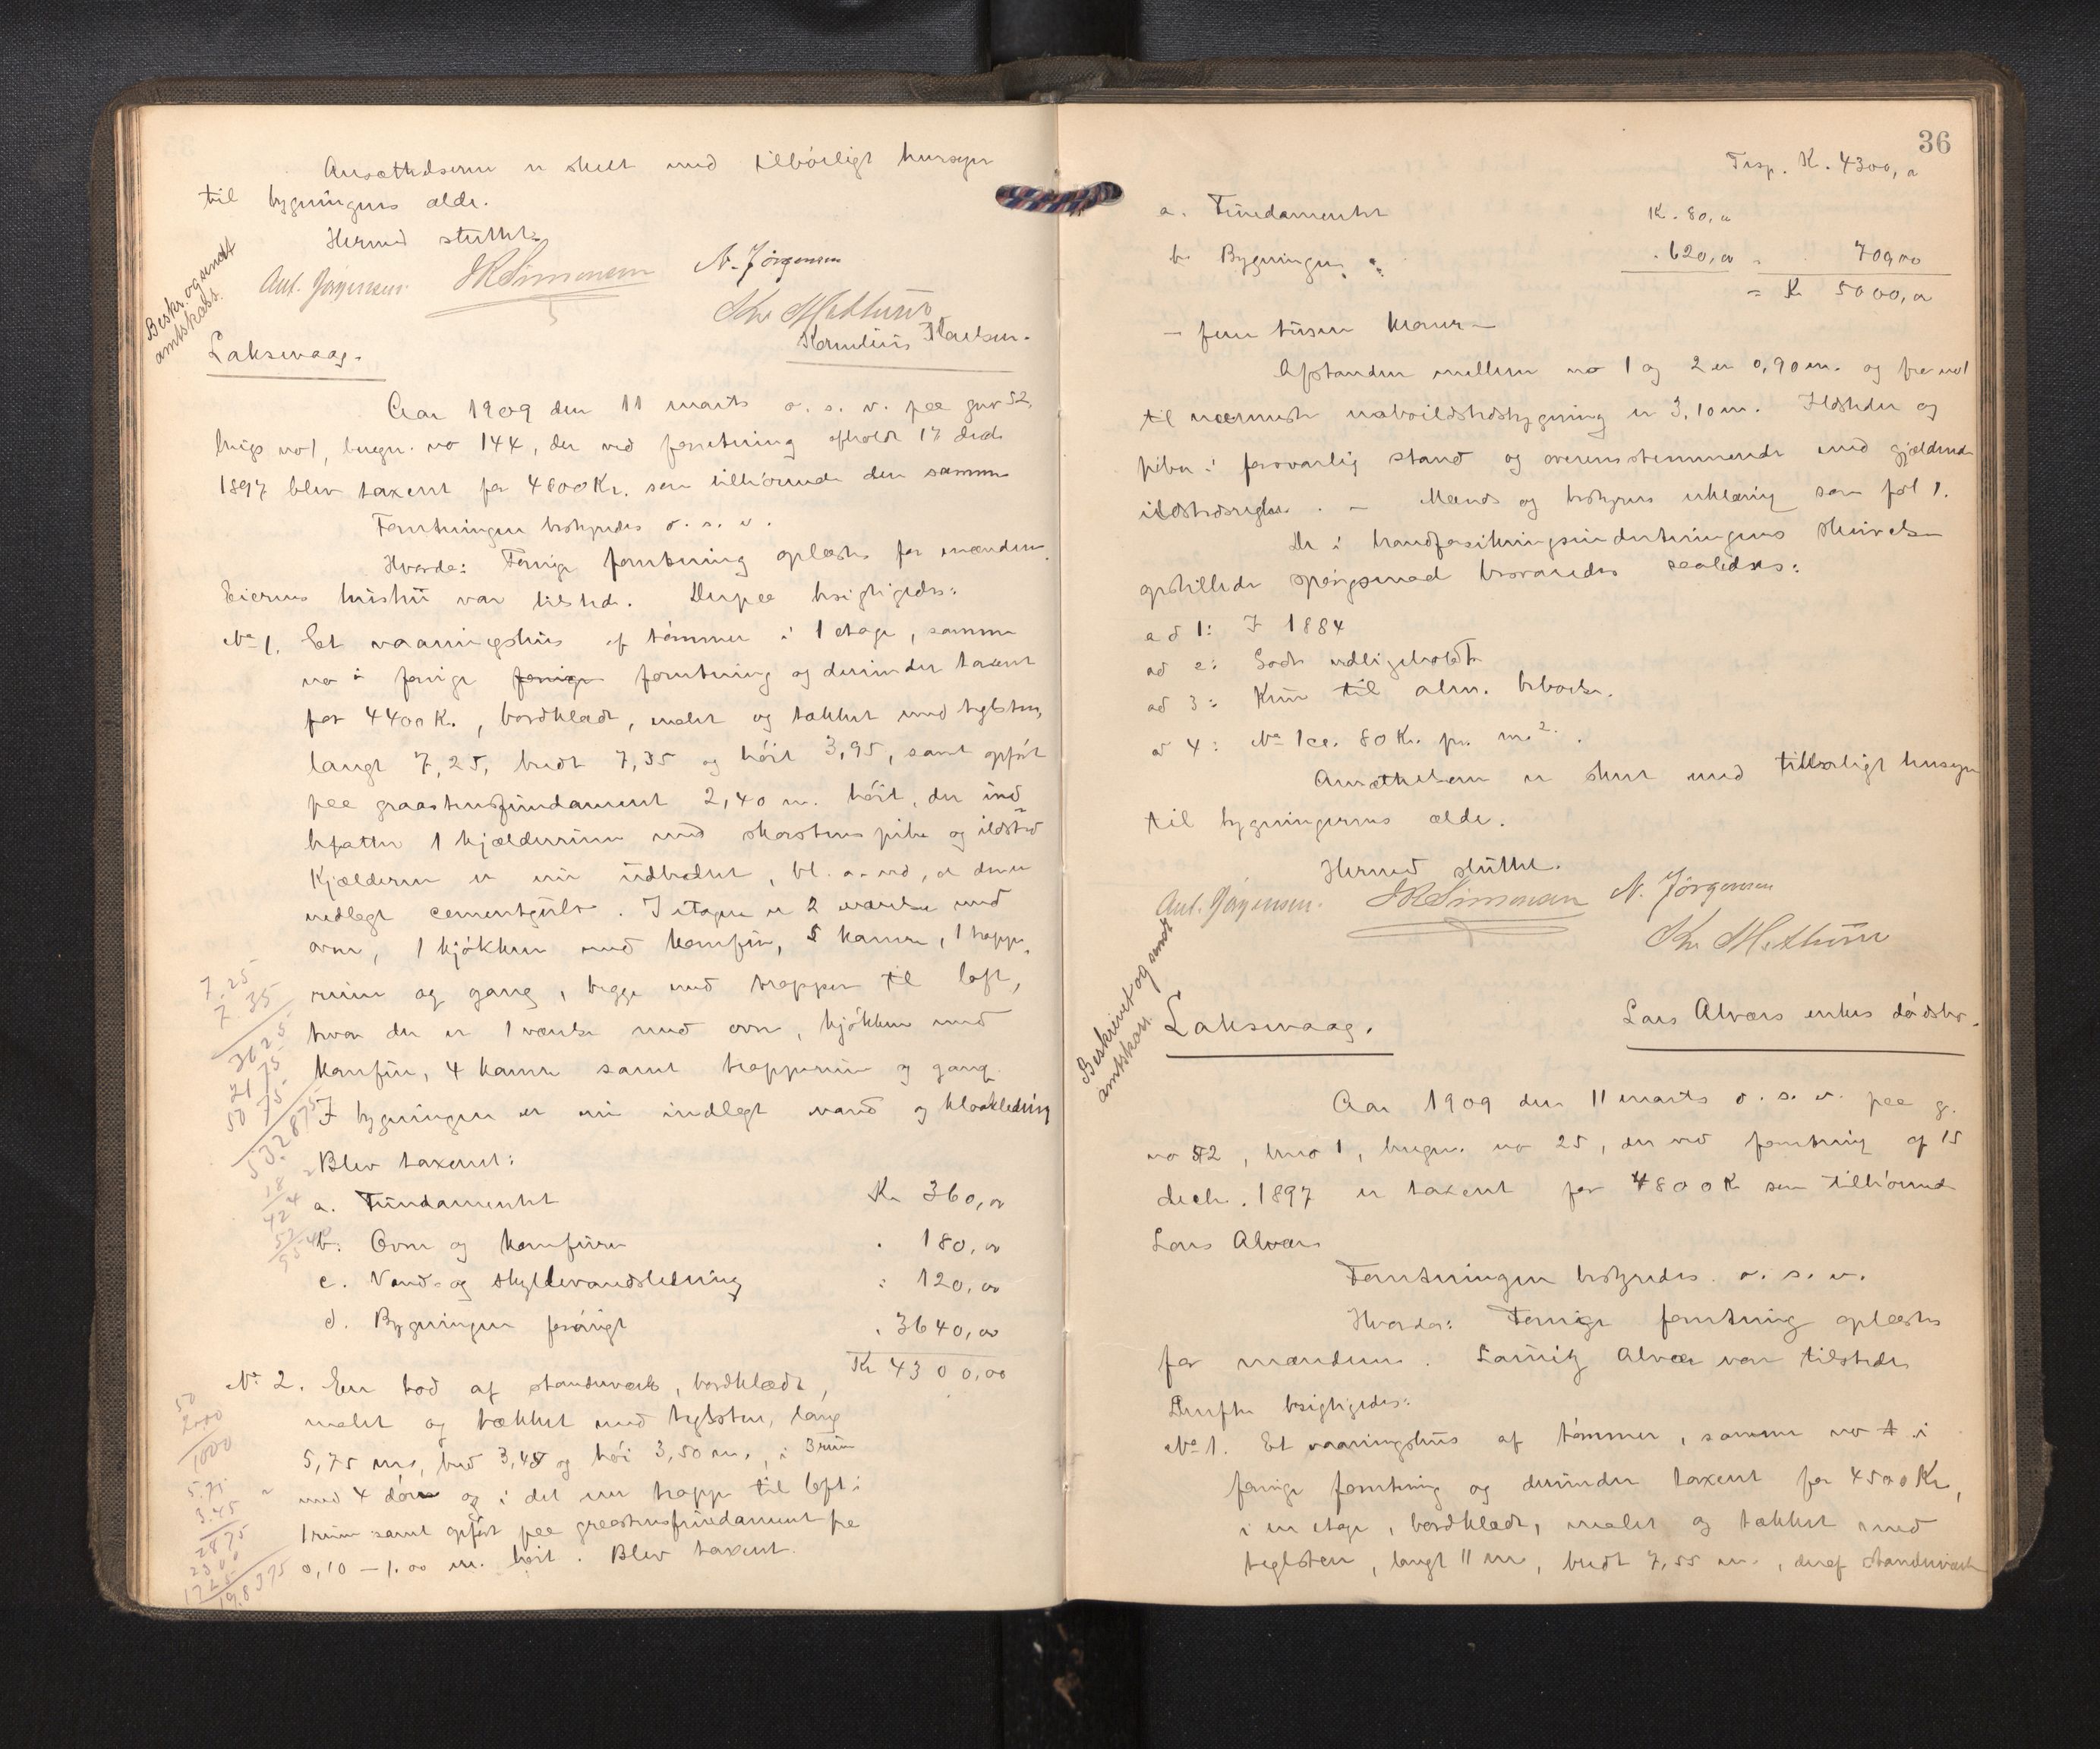 Ansættelserne er skeet med tilbørligt hensyn
til bygningens alde.
Hermed sluttet.
Ant. Jørgensen. N. Jørgensen
Beskr. og sendt
amtskass.
Laksevaag.
Aar 1909 den 11 marts o. s. v. paa gnr 52,
brugs no 1, bygn. no 144, der ved forretning afholdt 17 decb
1897 blev taxeret for 4800 Kr. som tilhørende den samme
Forretningen bestyredes o. s. v.
Hvorda: Forrige forretning oplæstes for mændene.
Eierens hustru var tilstede. Derpaa besigtigedes:
No 1. Et vaaningshus af tømmer i 1 etage, samme
no i forrige forrige forretning og derunder taxeret
for 4400 K., bordklædt, malet og tækket med teglsten,
langt 7,25, bredt 7,35 og høit 3,95, samt opført
paa graastensfundament 2,40 m. høit, der ind
befatter 1 kjælderrum med skorstens pibe og ildsted
Kjælderen er nu udbedret, bl. a. ved, at der er
nedlagt cementgulv. I etagen er 2 værelser med
ovn, 1 kjøkken med komfur, 5 kamre, 1 trappe,
rum og gang, begge med trapper til loft,
hvor der er 1 værelse med ovn, kjøkken med
komfur, 4 kamre samt trapperum og gang.
I bygningen er nu indlagt vand og kloakledning
Blev taxeret:
a. Fundamentet Kr 360,00
b. Ovne og komfurer . 180,00
c. Vand- og skyllevandsledning : 120,00
d. Bygningen forøvrigt . 3640,00
Kr 4300,00
No 2. En bod af standerværk, bordklædt,
malet og tækket med teglsten, lang
5,75 m., bred 3,45 og høi 3,50 m., i 3 rum
med 4 døre og i det ene trappe til loft i
1 rum samt opført paa graastensfundament fra
0,10 — 1.00 m. høit. Blev taxeret.
7.25
7.35
3625
2175
5075
53.2875
18
424
50
2000
1000
5.75
3.45
2875
2300
1725
19.8375
36
Trsp. K. 4300,00
a. Fundamentet K. 80,00
b. Bygningen . 620,00 = 700,00
= K 5000,00
— fem tusen kroner —
Afstanden mellem no 1 og 2 er 0,90 m. og fra no 1
til nærmeste naboildstedsbygning er 3,10 m. Ildsteder og
piber i forsvarlig stand og overensstemmende med gjældende
ildstedsregler. — Mænds og bestyrers erklæring som fol 1.
De i brandforsikringsindretningens skrivelse
opstillede spørgsmaal besvaredes saaledes:
ad 1: I 1884
ad 2: Godt vedligeholdt
ad 3: Kun til alm. beboelse.
ad 4: No 1 ca. 80 Kr. pr. m.2.
Ansættelsen er skeet med tilbørligt hensyn
til bygningernes ælde.
Hermed sluttet.
Ant. Jørgensen. N. Jørgensen
Beskrevet og sendt
amtskass.
Laksevaag. Lars Alværs enkes dødsbo.
Aar 1909 den 11 marts o. s. v. paa g.
no 52, bno 1, bygn. no 25, der ved forretning af 15
decbr. 1897 er taxeret for 4800 K som tilhørende
Lars Alvær
Forretningen bestyredes o. s. v.
Hvorda: Forrige forretning oplæstes
for mændene. Alvær var tilstede
Derefter besigtigedes:
No 1. Et vaaningshus af tømmer, samme no 1 i
forrige forretning og derunder taxeret for 4500 Kr,
i en etage, bordklædt, malet og tækket med
teglsten, langt 11 m, bredt 7,55 m., deraf standerværk